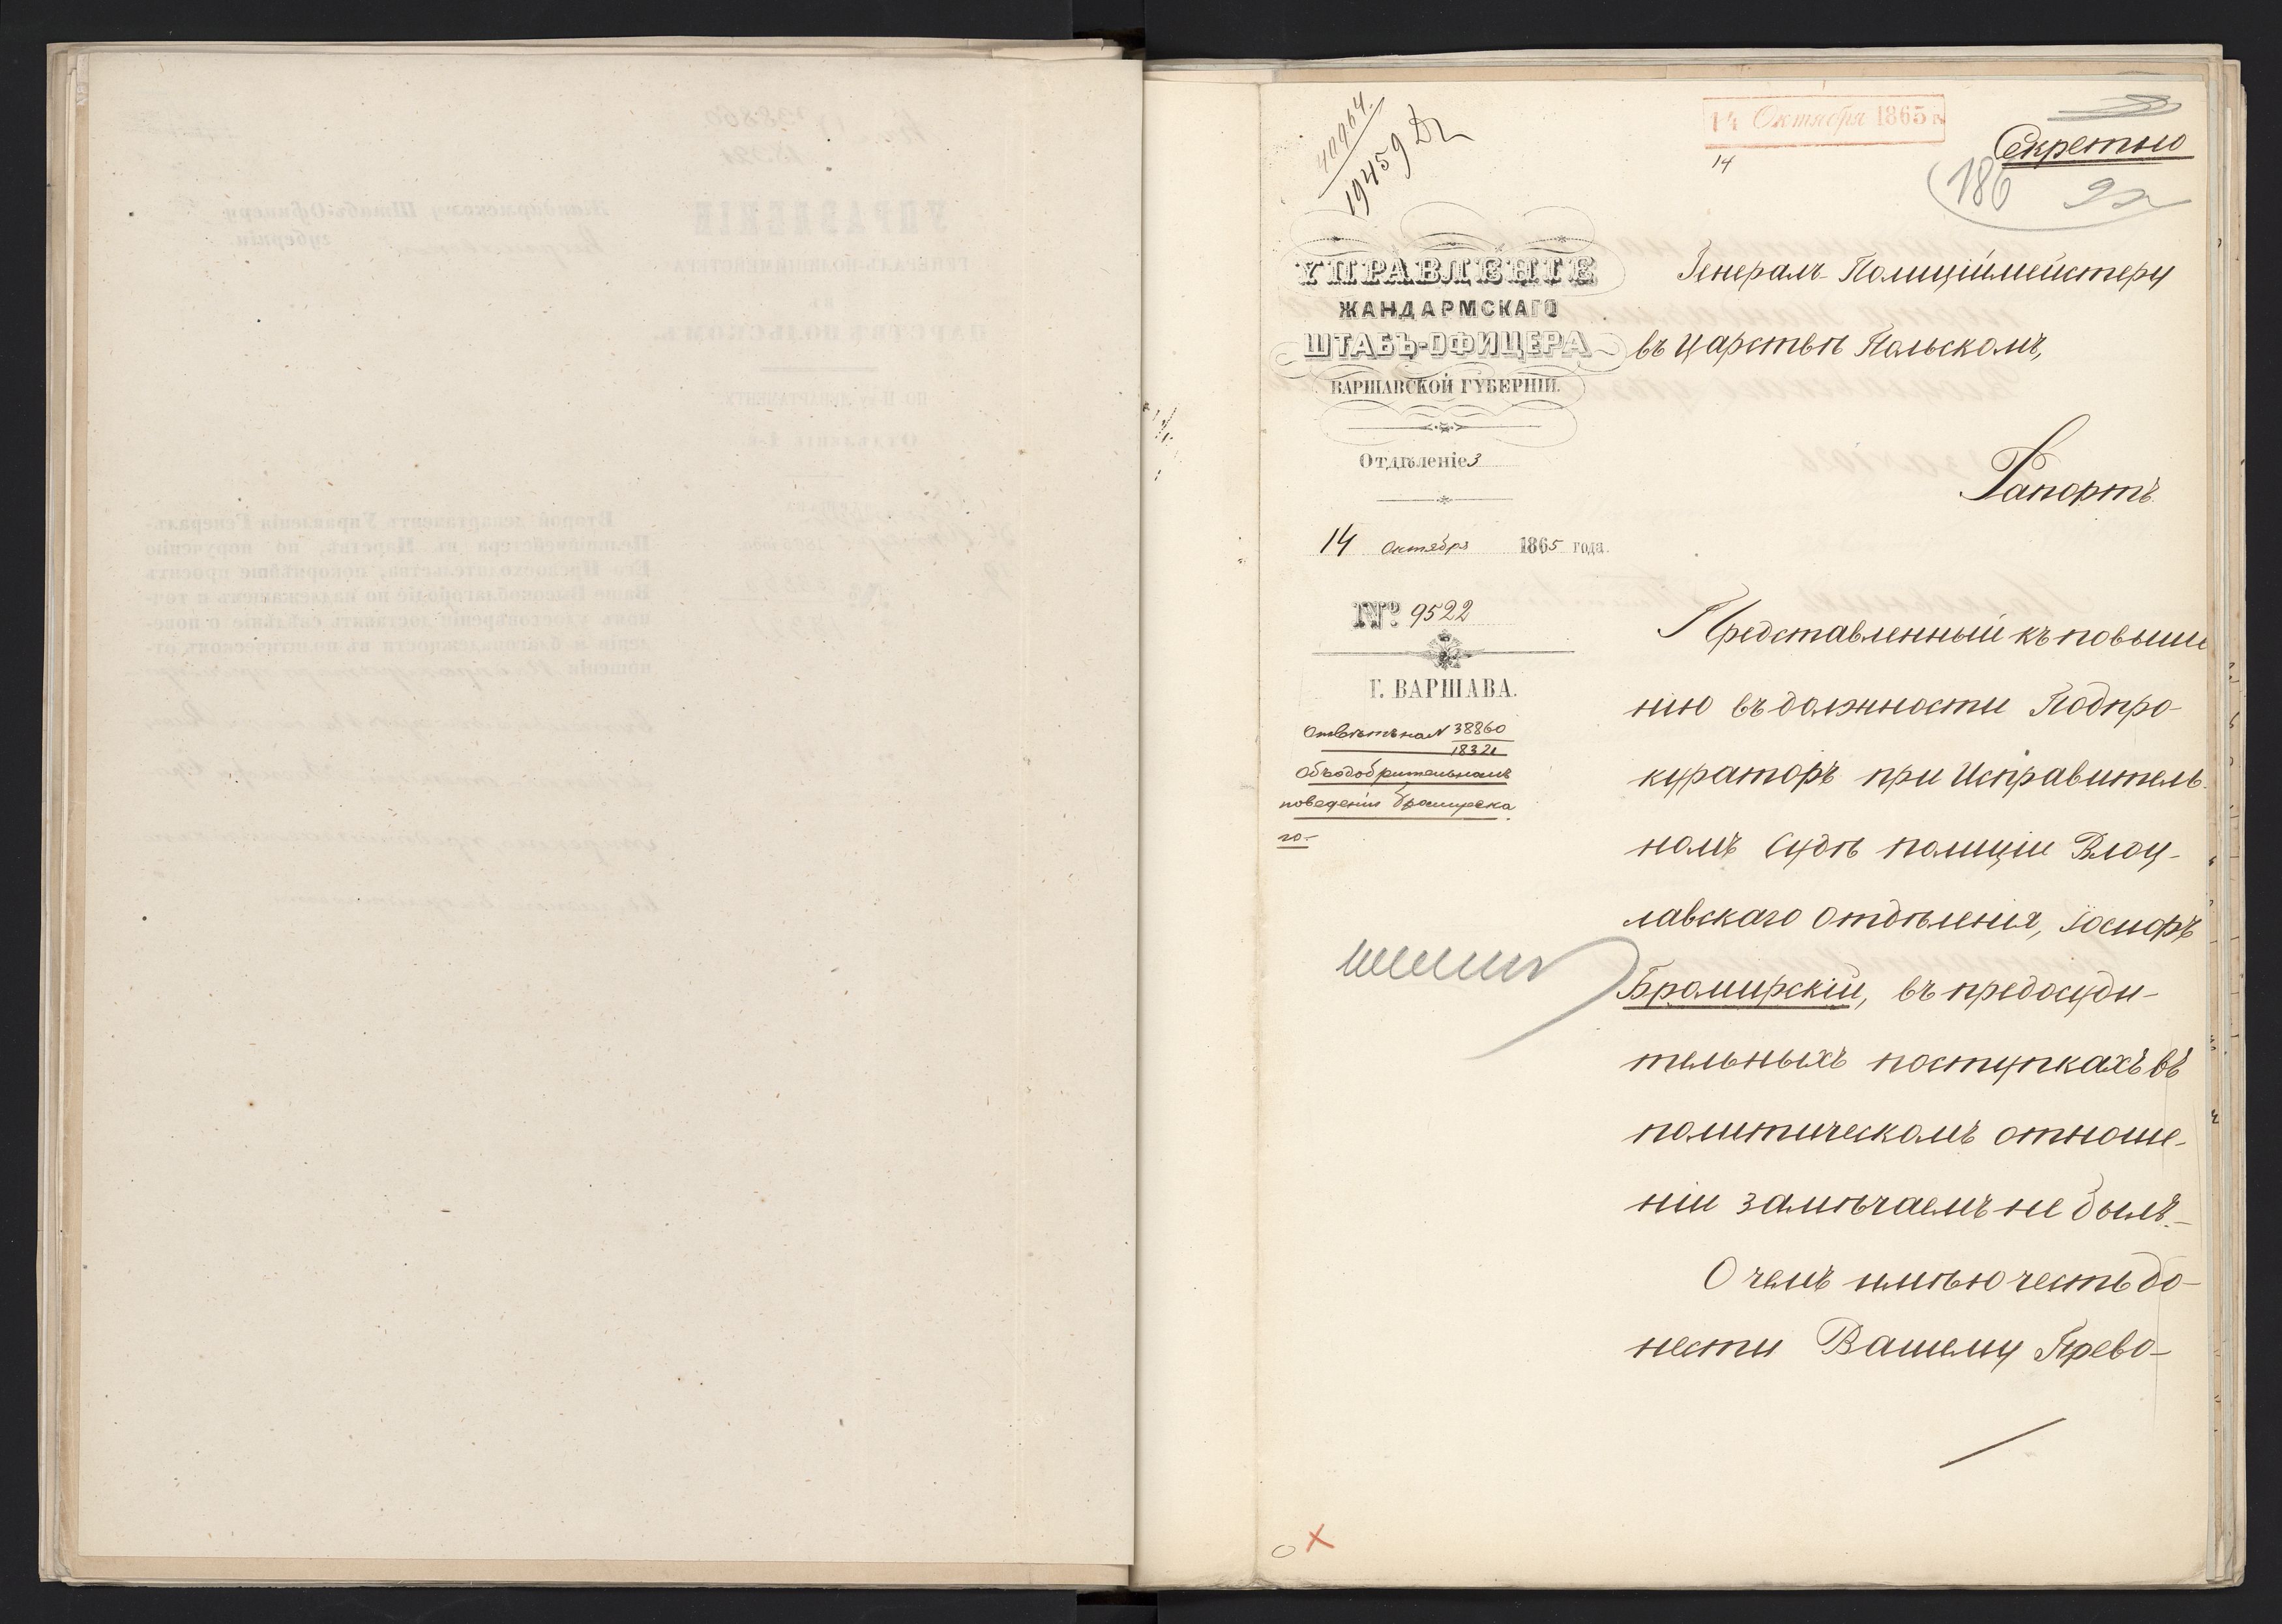 40964.
19459 Д2
14 Октября 1865 г.
14
Секретно
186
92
УПРАВЛЕНІЕ
ЖАНДАРМСКАГО
ШТАБЪ-ОФИЦЕРА
ВАРШАВСКОЙ ГУБЕРНІИ.
Отдѣленіе 3
14 октября 1865 года.
№ 9522
Г. ВАРШАВА.
Отвѣтъ на № 38860
18321
Объ одобрительномъ
поведеніи Бромирска
го.
Генералъ-Полиціймейстеру
въ Царствѣ Польскомъ,
Рапортъ.
Представленный къ повыше
нію въ должности Подпро-
кураторъ при Исправитель-
номъ Судѣ полиціи Влоц-
лавскаго Отдѣленія, Іосифъ
Бромирскій, въ предосуди-
тельныхъ поступкахъ въ
политическомъ отноше-
ніи замѣчаемъ не былъ.-
О чемъ имѣю честь до-
нести Вашему Прево-